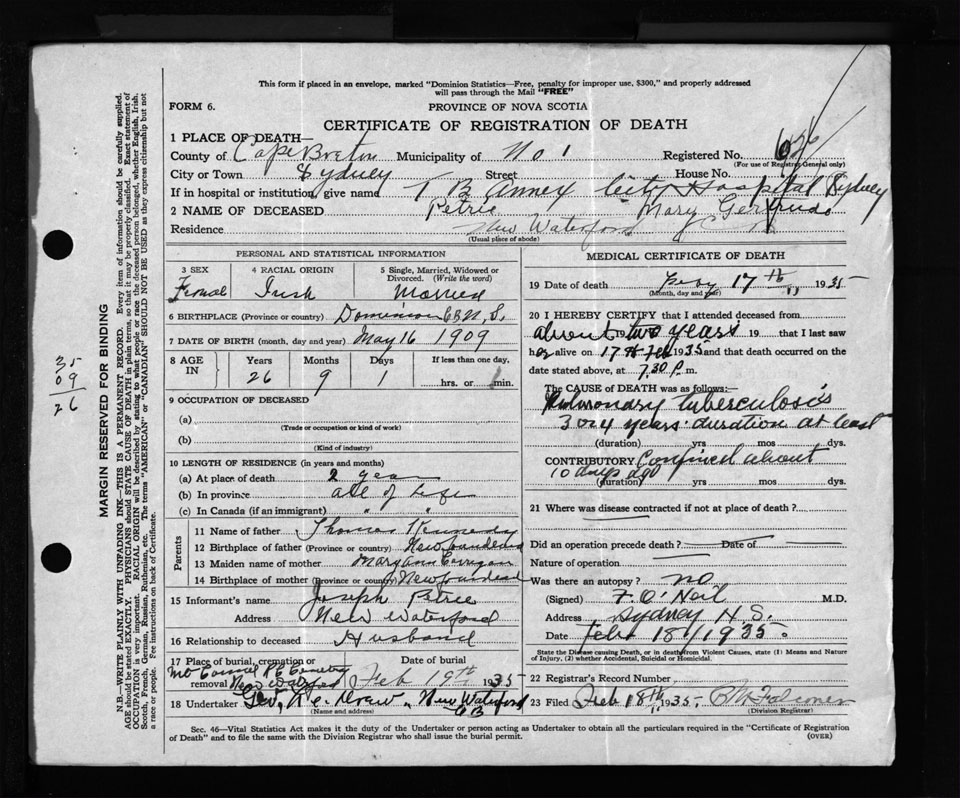 This form if placed in an envelope, marked "Dominion Statistics—Free, penalty for improper use, $300," and properly addressed
will pass through the Mail "FREE"
FORM 6.
PROVINCE OF NOVA SCOTIA
CERTIFICATE OF REGISTRATION OF DEATH
1 PLACE OF DEATH—
County of Cape Breton Municipality of No 1 Registered No.
(For use of Registrar General only)
City or Town Sydney Street House No.
If in hospital or institution, give name T B Annex City Hospital Sydney
2 NAME OF DECEASED Petrie Mary Gertrude
Residence New Waterford
(Usual place of abode)
PERSONAL AND STATISTICAL INFORMATION
3 SEX 4 RACIAL ORIGIN 5 Single, Married, Widowed or
Divorced. (Write the word)
Female Irish Married
6 BIRTHPLACE (Province or country) Dominion C B N. S.
7 DATE OF BIRTH (month, day and year) May 16 1909
8 AGE IN Years Months Days If less than one day,
26 9 1 hrs. or min.
9 OCCUPATION OF DECEASED
(a)
(Trade or occupation or kind of work)
(b)
(Kind of industry)
10 LENGTH OF RESIDENCE (in years and months)
(a) At place of death 2 yea
(b) In province all of life
(c) In Canada (if an immigrant) " " "
Parents
11 Name of father Thomas Kennedy
12 Birthplace of father (Province or country) Newfoundland
13 Maiden name of mother Mary Ann Corrigan
14 Birthplace of mother (Province or country) Newfoundland
15 Informant's name Joseph Petrie
Address New Waterford
16 Relationship to deceased Husband
17 Place of burial, cremation or Date of burial
removal New Waterford Feb 19th 1935
18 Undertaker Geo. New Waterford
C B
(Name and address)
MEDICAL CERTIFICATE OF DEATH
19 Date of death Feby 17th 1935
(Month, day and year)
20 I HEREBY CERTIFY that I attended deceased from
about two years 19 that I last saw
her alive on 17th Feb 1935 and that death occurred on the
date stated above, at 7.30 P. m.
The CAUSE OF DEATH was as follows:—
Pulmonary tuberculosis
3 or 4 years duration at least
(duration) yrs mos dys.
CONTRIBUTORY Confined about
10 days ago
(duration) yrs mos dys.
21 Where was disease contracted if not at place of death?
Did an operation precede death? Date of
Nature of operation
Was there an autopsy? no
(Signed) F. O'Neil M.D.
Address Sydney N.S.
Date Feb 18 1935.
State the Disease causing Death, or in death from Violent Causes, state (1) Means and Nature of Injury, (2) whether Accidental, Suicidal or Homicidal.
22 Registrar's Record Number
23 Filed Feb 18th 1935.
(Division Registrar)
Sec. 46—Vital Statistics Act makes it the duty of the Undertaker or person acting as Undertaker to obtain all the particulars required in the "Certificate of Registration
of Death" and to file the same with the Division Registrar who shall issue the burial permit. (OVER)
MARGIN RESERVED FOR BINDING
N.B.—WRITE PLAINLY WITH UNFADING INK—THIS IS A PERMANENT RECORD. Every item of information should be carefully supplied.
AGE should be stated EXACTLY. PHYSICIANS should STATE CAUSE OF DEATH in plain terms, so that it may be properly classified. Exact statement of
OCCUPATION is very important. RACIAL ORIGIN will be described by stating to what people or race the deceased person belonged, whether English, Irish,
Scotch, French, German, Russian, Ruthenian, etc. The terms "AMERICAN" or "CANADIAN" SHOULD NOT BE USED as they express citizenship but not
a race or people. See instructions on back of Certificate.
35
09
26